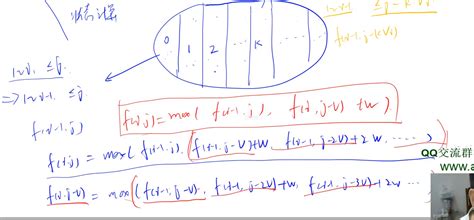 状态计算
1~i ≤j
⇒ 1~i-1 ≤j
f(i-1,j)
0 1 2 ... K ...
1~i-1 ≤j-kVi
f(i-1,j-kVi)
f(i,j)=max( f(i-1,j), f(i,j-v)+w )
f(i,j) = max( f(i-1,j), f(i-1,j-v)+w, f(i-1,j-2v)+2w, ...... )
f(i,j-v) = max( f(i-1,j-v), f(i-1,j-2v)+w, f(i-1,j-3v)+2w ...
QQ交流群
www.a